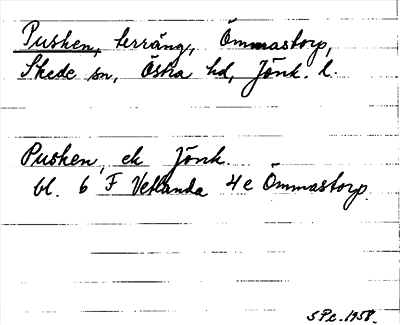 Pusken, terräng, Ömmastorp,
Skede sn, Östra hd, Jönk. l.
Pusken, ek Jönk.
bl. 6 F Vetlanda 4e Ömmastorp.
S Pc. 1958.